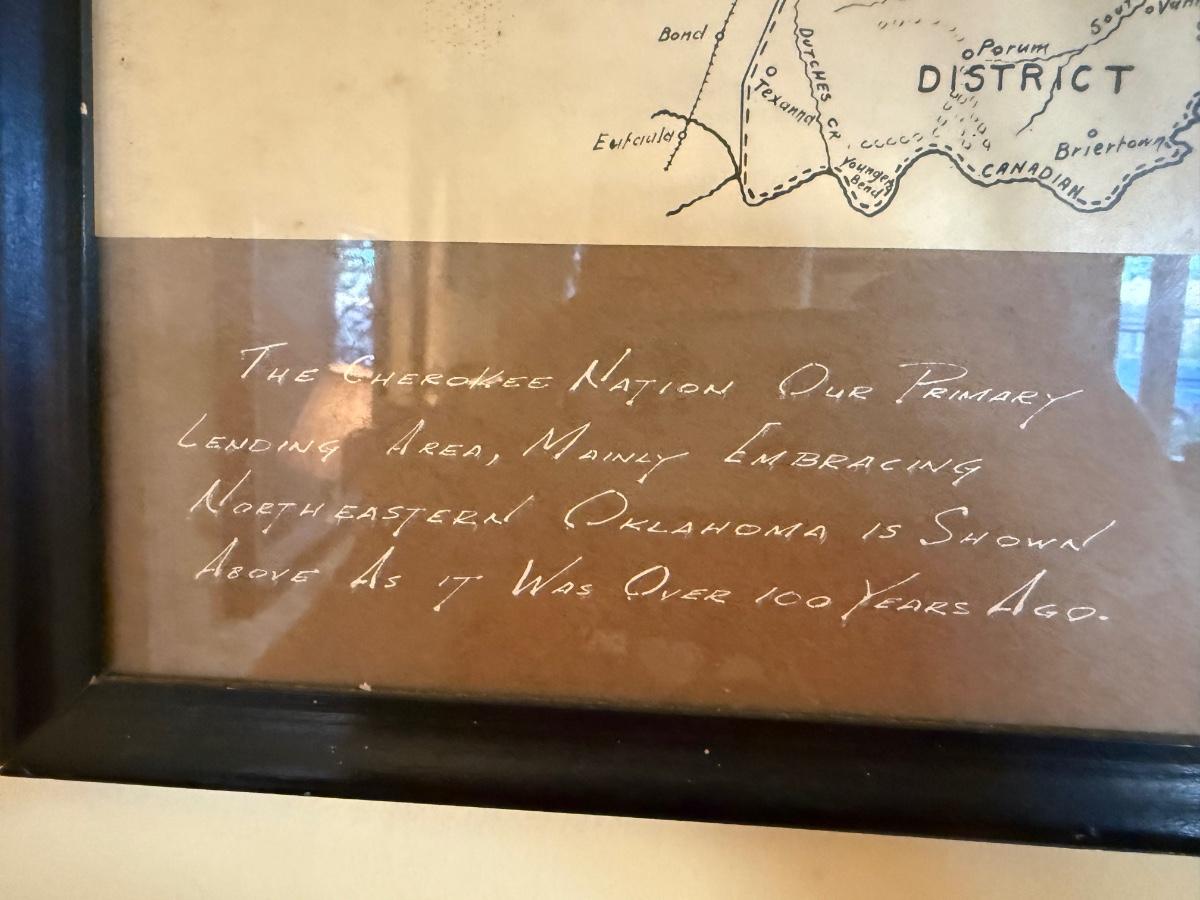 Bond
Eufaula
Texanna
DUTCHES CR
Porum
DISTRICT
Briertown
Youngers
Bend
CANADIAN
THE CHEROKEE NATION OUR PRIMARY
LENDING AREA, MAINLY EMBRACING
NORTHEASTERN OKLAHOMA IS SHOWN
ABOVE AS IT WAS OVER 100 YEARS AGO.